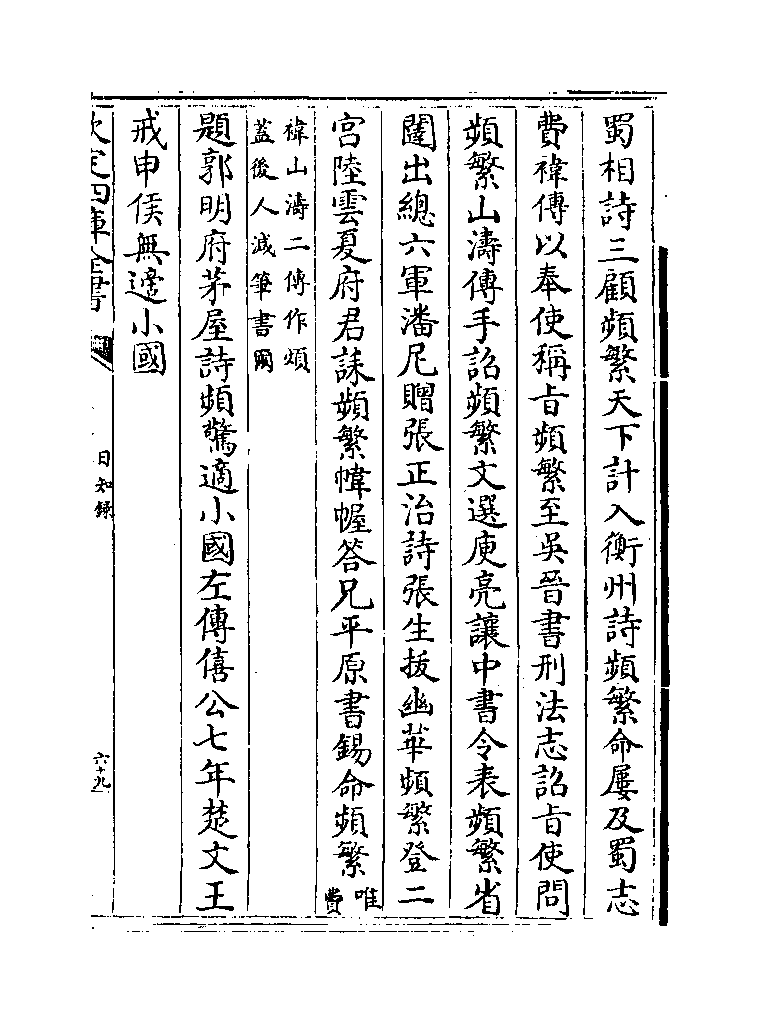 蜀相詩三顧頻繁天下計入衡州詩頻繁命屢及蜀志
費禕傳以奉使稱旨頻繁至吳晉書刑法志詔旨使問
頻繁山濤傳手詔頻繁文選庾亮讓中書令表頻繁省
闥出總六軍潘尼贈張正治詩張生拔幽華頻繁登二
宮陸雲夏府君誄頻繁幃幄答兄平原書錫命頻繁唯費
禕山濤二傳作煩
蓋後人減筆書爾
題郭明府茅屋詩頻驚適小國左傳僖公七年楚文王
戒申侯無適小國
欽定四庫全書
日知錄
六十九